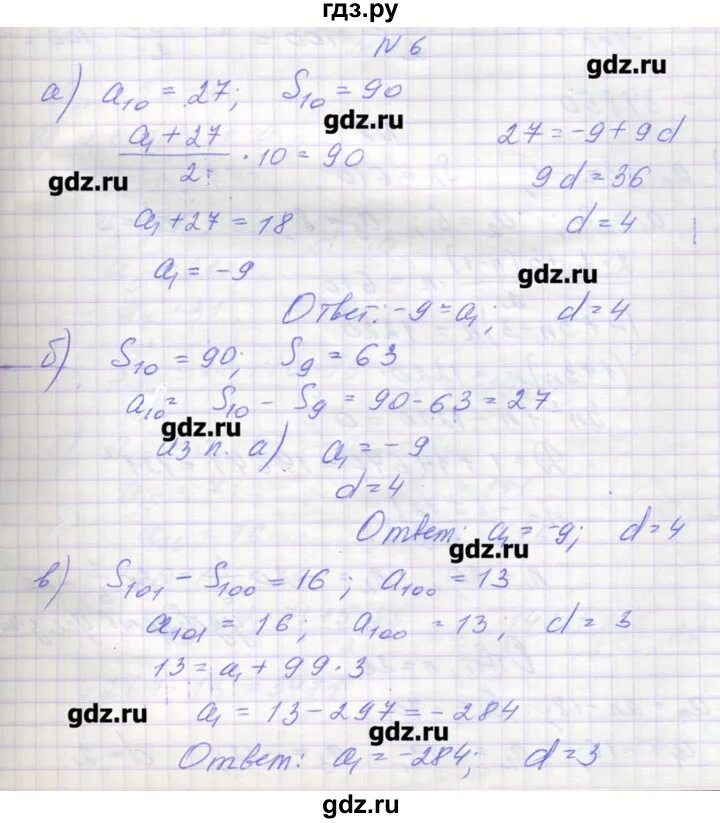 гдз.ру
N 6
gdz.ru
а) a₁₀ = 27; S₁₀ = 90
gdz.ru
(a₁ + 27)/2 · 10 = 90
27 = -9 + 9d
gdz.ru
9d = 36
a₁ + 27 = 18
d = 4
a₁ = -9
gdz.ru
Ответ: -9 = a₁; d = 4
б) S₁₀ = 90; S₉ = 63
a₁₀ = S₁₀ - S₉ = 90 - 63 = 27
gdz.ru
из п. а) a₁ = -9
d = 4
Ответ: a₁ = -9; d = 4
gdz.ru
в) S₁₀₁ - S₁₀₀ = 16; a₁₀₀ = 13
a₁₀₁ = 16; a₁₀₀ = 13; d = 3
13 = a₁ + 99 · 3
gdz.ru
a₁ = 13 - 297 = -284
gdz.ru
Ответ: a₁ = -284; d = 3
gdz.ru